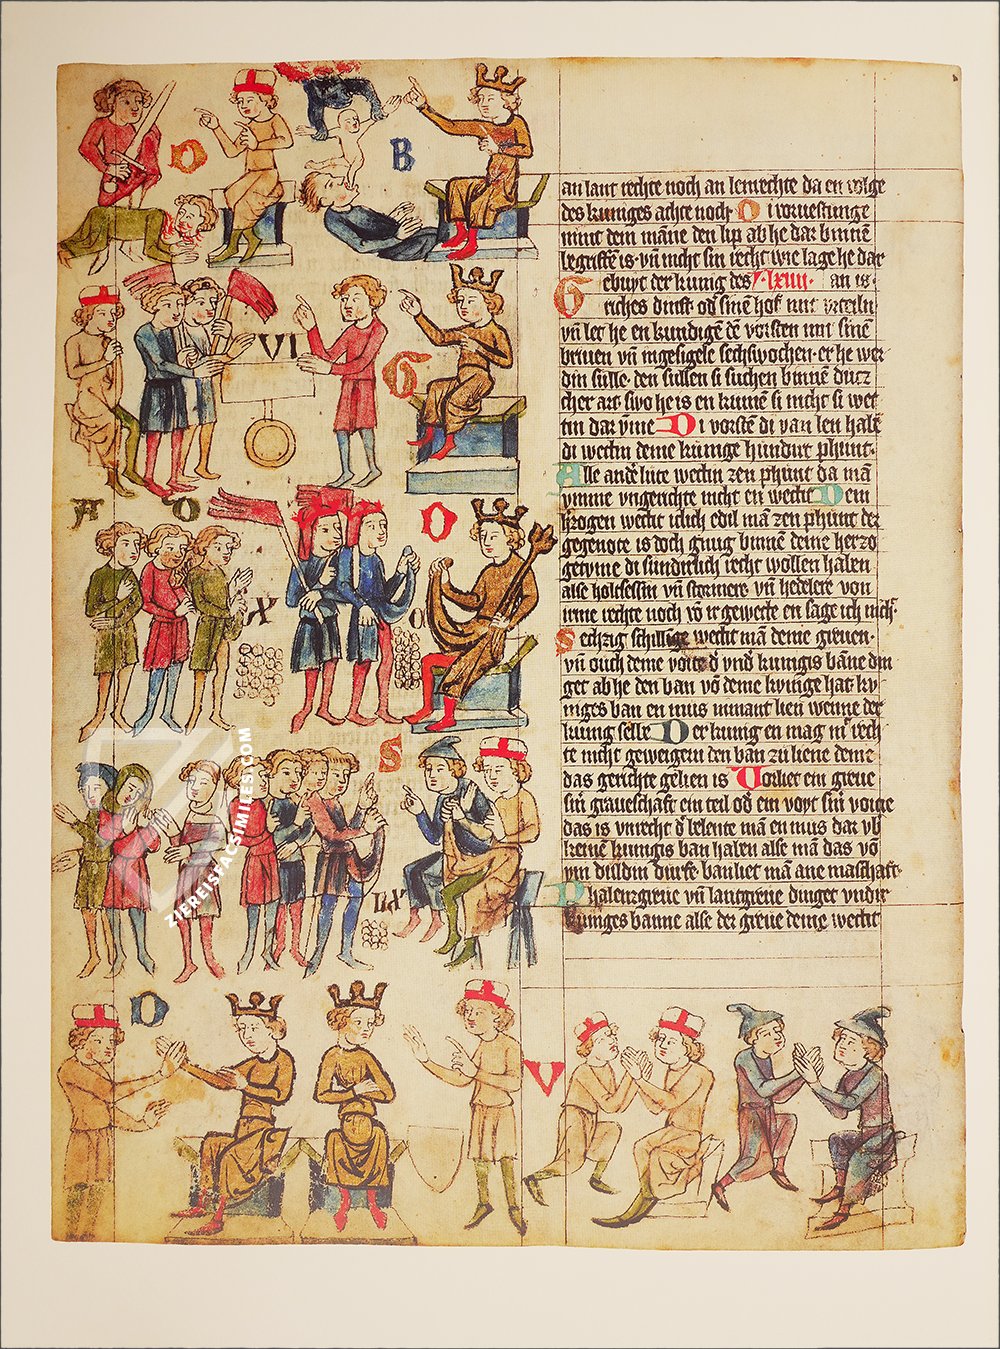 O
B
VI
G
A
O
O
X
S
LX
D
V
an lant rechte noch an lenrechte da en volge
des kuniges achte noch Di vorvestunge
nimt dem māne den lip ab he dar binnē
begriffen is. vn̄ nicht sin recht wie lage he dar
Gebuyt der kunig des lxiiii. an is.
riches dinst. od sinē hof mit vrteiln
vn̄ let he en kundigē dē vorsten mit sinē
briven vn̄ ingesigele sechswochen. er he wer
din sulle. den sullen si suchen binnē dutz
cher art swo he is en kumē si nicht si wet
tin dar v̄me Di vorstē di van len habē
di wettin deme kunige hundirt phunt.
Alle andͤ lute wettin zen phunt da mā
vmme vngerichte nicht en wecht Dem
hzogen wecht iclich edil mā zen phunt der
gegenote is doch gnug binnē deme herzo
getvme di sundirlich recht wollen haben
alse holcsessin vn̄ stormere. vn̄ hedelere von
irme rechte noch vō ir gewette en sage ich nich
Sechzig schillīge wecht mā deme greven.
vn̄ ouch deme voite dͤ vndͤ kunigis bāne din
get ab he den ban vō deme kvnīge hat. kv
niges ban en mus nimant lien wenne der
kunig selbe Der kunig en mag mͭ rech
te nicht geweigern den ban zu liene deme
das gerichte gelien is Vorliet ein greve
sin graveschaft ein teil odͤ ein voyt sin voitie
das is vnrecht dͤ belente mā en mus dar vb
keinē kunigis ban haben alse mā das vō
ym duldin durfe. ban liet mā ane māschaft
Phalenzgreve vn̄ lantgreve dinget vndir
kuniges banne alse der greve deme wecht
ZIEREISFACSIMILES.COM